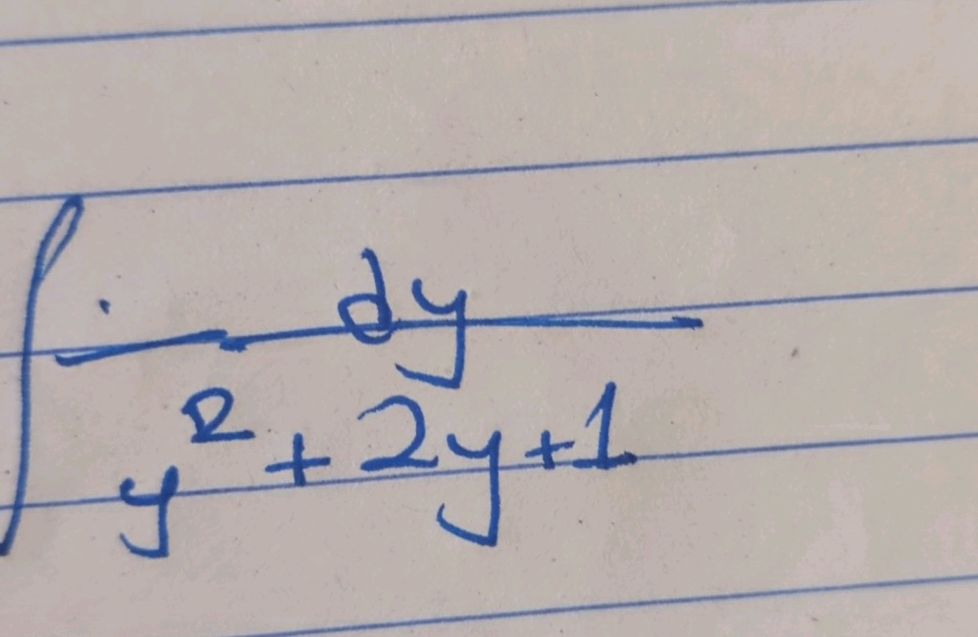 ∫ dy
y² + 2y + 1